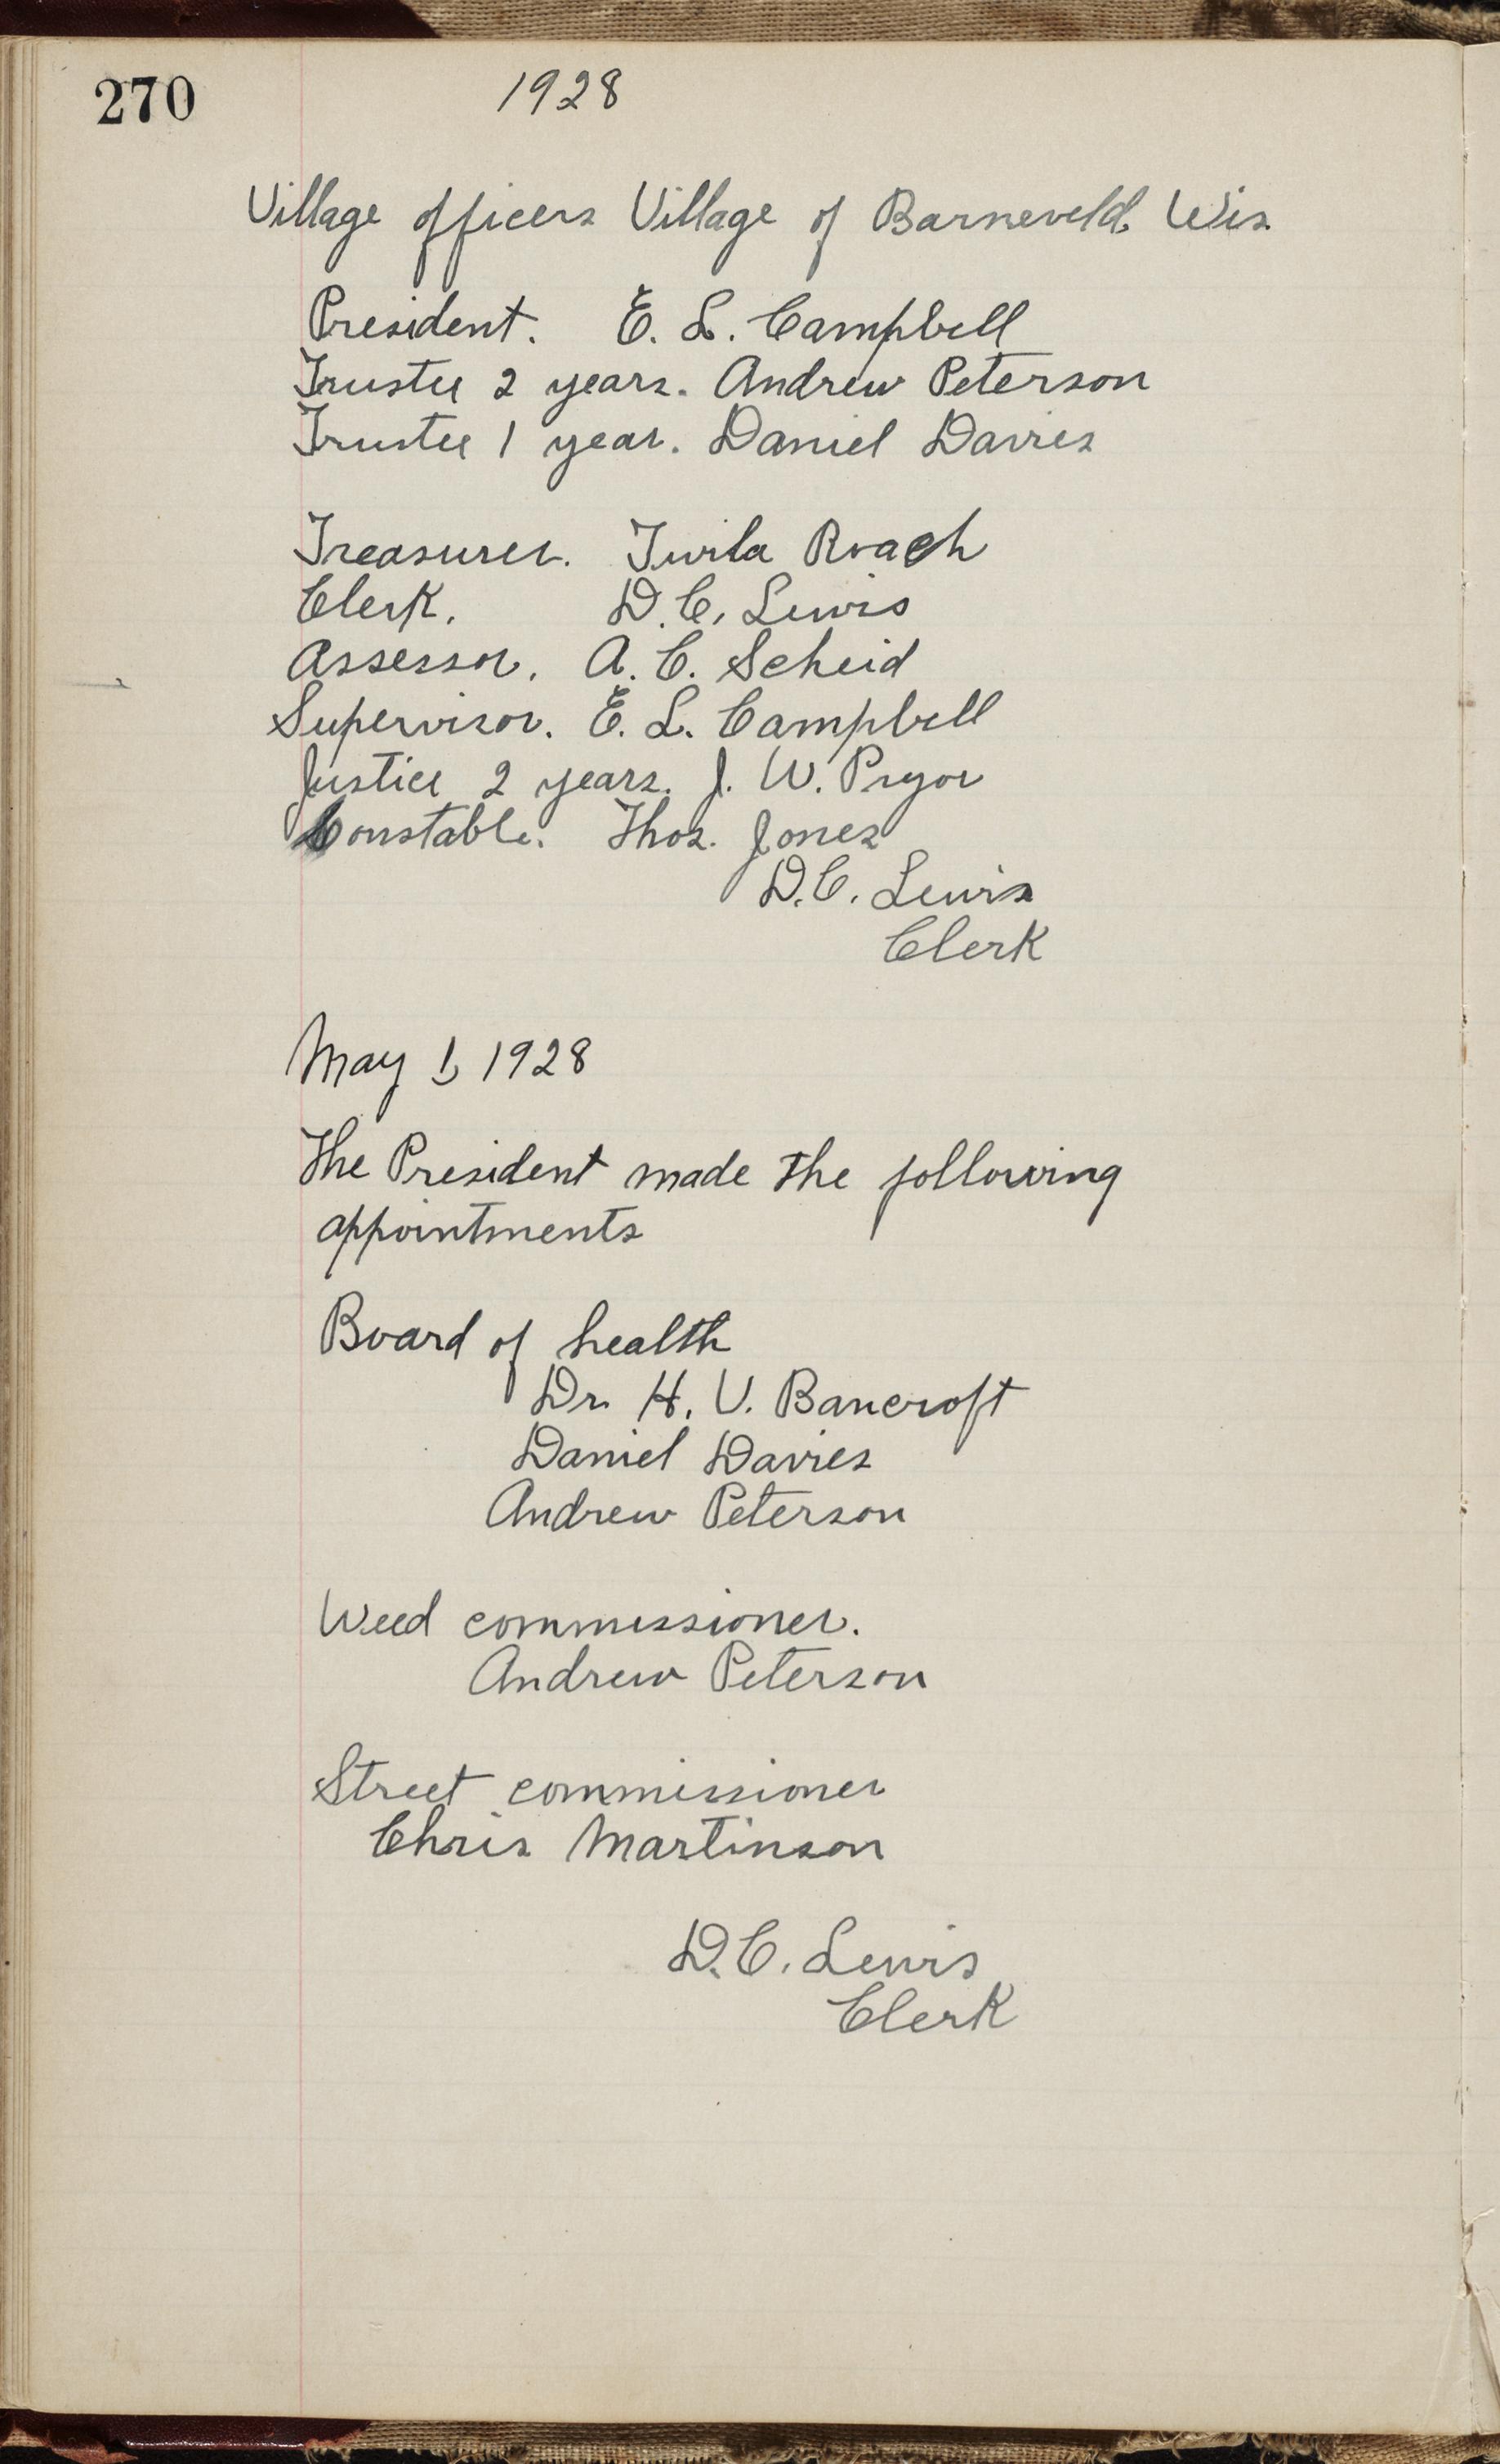 270
1928
Village officers Village of Barneveld, Wis.
President. E. L. Campbell
Trustee 2 years. Andrew Peterson
Trustee 1 year. Daniel Davies
Treasurer. Twila Roach
Clerk. D. C. Lewis
Assessor. A. C. Scheid
Supervisor. E. L. Campbell
Justice 2 years. J. W. Pryor
Constable. Thos. Jones
D. C. Lewis
Clerk
May 1, 1928
The President made the following
appointments
Board of health
Dr. H. V. Bancroft
Daniel Davies
Andrew Peterson
Weed commissioner.
Andrew Peterson
Street commissioner
Chris Martinson
D. C. Lewis
Clerk